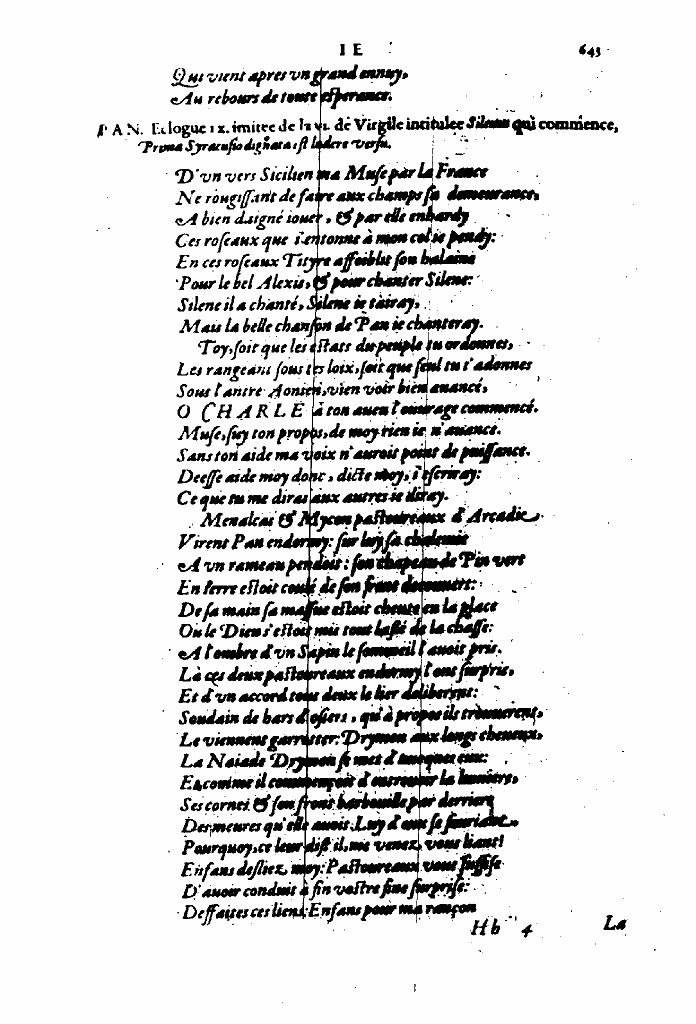 I E 643
Qui vient apres vn grand ennuy,
Au rebours de toute esperance.
PAN. Eclogue IX. imitee de la VI. de Virgile intitulee Silenus qui commence,
Prima Syracusio dignata est ludere versu.
D'vn vers Sicilien ma Muse par la France
Ne rougissant de faire aux champs sa demeurance,
A bien daigné iouer, & par elle enhardy
Ces roseaux que i'entonne à mon col ie pendy:
En ces roseaux Tityre affoiblit son halaine
Pour le bel Alexis, & pour chanter Silene:
Silene il a chanté, Silene ie tairay,
Mais la belle chanson de Pan ie chanteray.
Toy, soit que les estats du peuple tu ordonnes,
Les rangeant sous tes loix, soit que seul tu t'adonnes
Sous l'antre Aonien, vien voir bien auancé,
O CHARLE à ton aueu l'ouurage commencé.
Muse, suy ton propos, de moy rien ie n'auance.
Sans ton aide ma voix n'auroit point de puissance.
Deesse aide moy donc, dicte moy, i'escriray:
Ce que tu me diras aux autres ie diray.
Menalcas & Mycon pastoureaux d'Arcadie
Virent Pan endormy: sur luy sa chalemie
A vn rameau pendoit: son chapeau de Pin vert
En terre estoit coulé de son front decouuert:
De sa main sa massue estoit cheute en la place
Ou le Dieu s'estoit mis tout lassé de la chasse:
A l'ombre d'vn Sapin le sommeil l'auoit pris.
Là ces deux pastoureaux endormy l'ont surpris,
Et d'vn accord tous deux le lier deliberent:
Soudain de hars d'osiers, qu'à propos ils trouuerent,
Le viennent garrotter: Drymon aux longs cheueux,
La Naiade Drymon se met d'auecques eux:
Et comme il commençoit d'entrouurir la lumiere,
Ses cornes & son front barbouille par derriere
Des meures qu'elle auoit. Luy d'eux se souriant,
Pourquoy, ce leur dist il, me venez vous liant?
Enfans desliez moy: Pastoureaux vous suffise
D'auoir conduit à fin vostre fine surprise:
Deffaites ces liens: Enfans pour ma rançon
Hh 4 La